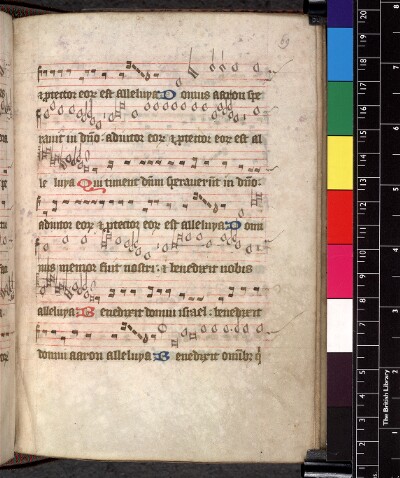 69
⁊ ꝓtector eoꝝ est alleluya. Domus aaron spe
rauit in dn̄o: adiutor eoꝝ ⁊ ꝓtector eoꝝ est al
le luya Qui timent dūm sperauerūt in dn̄o:
adiutor eoꝝ ⁊ ꝓtector eoꝝ est alleluya. Domi
nus memor fuit nostri: ⁊ benedixit nobis
alleluya: Benedixit domui israel: benedixit
domui aaron alleluya Benedixit omībꝫ q̄
The British Library